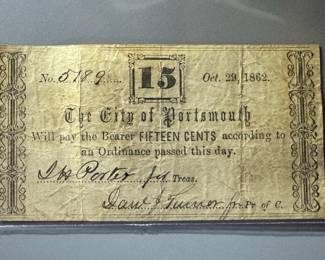 No. 5189 15 Oct. 29, 1862.
The City of Portsmouth
Will pay the Bearer FIFTEEN CENTS according to
an Ordinance passed this day.
Porter Treas.
Turner Pr of C.